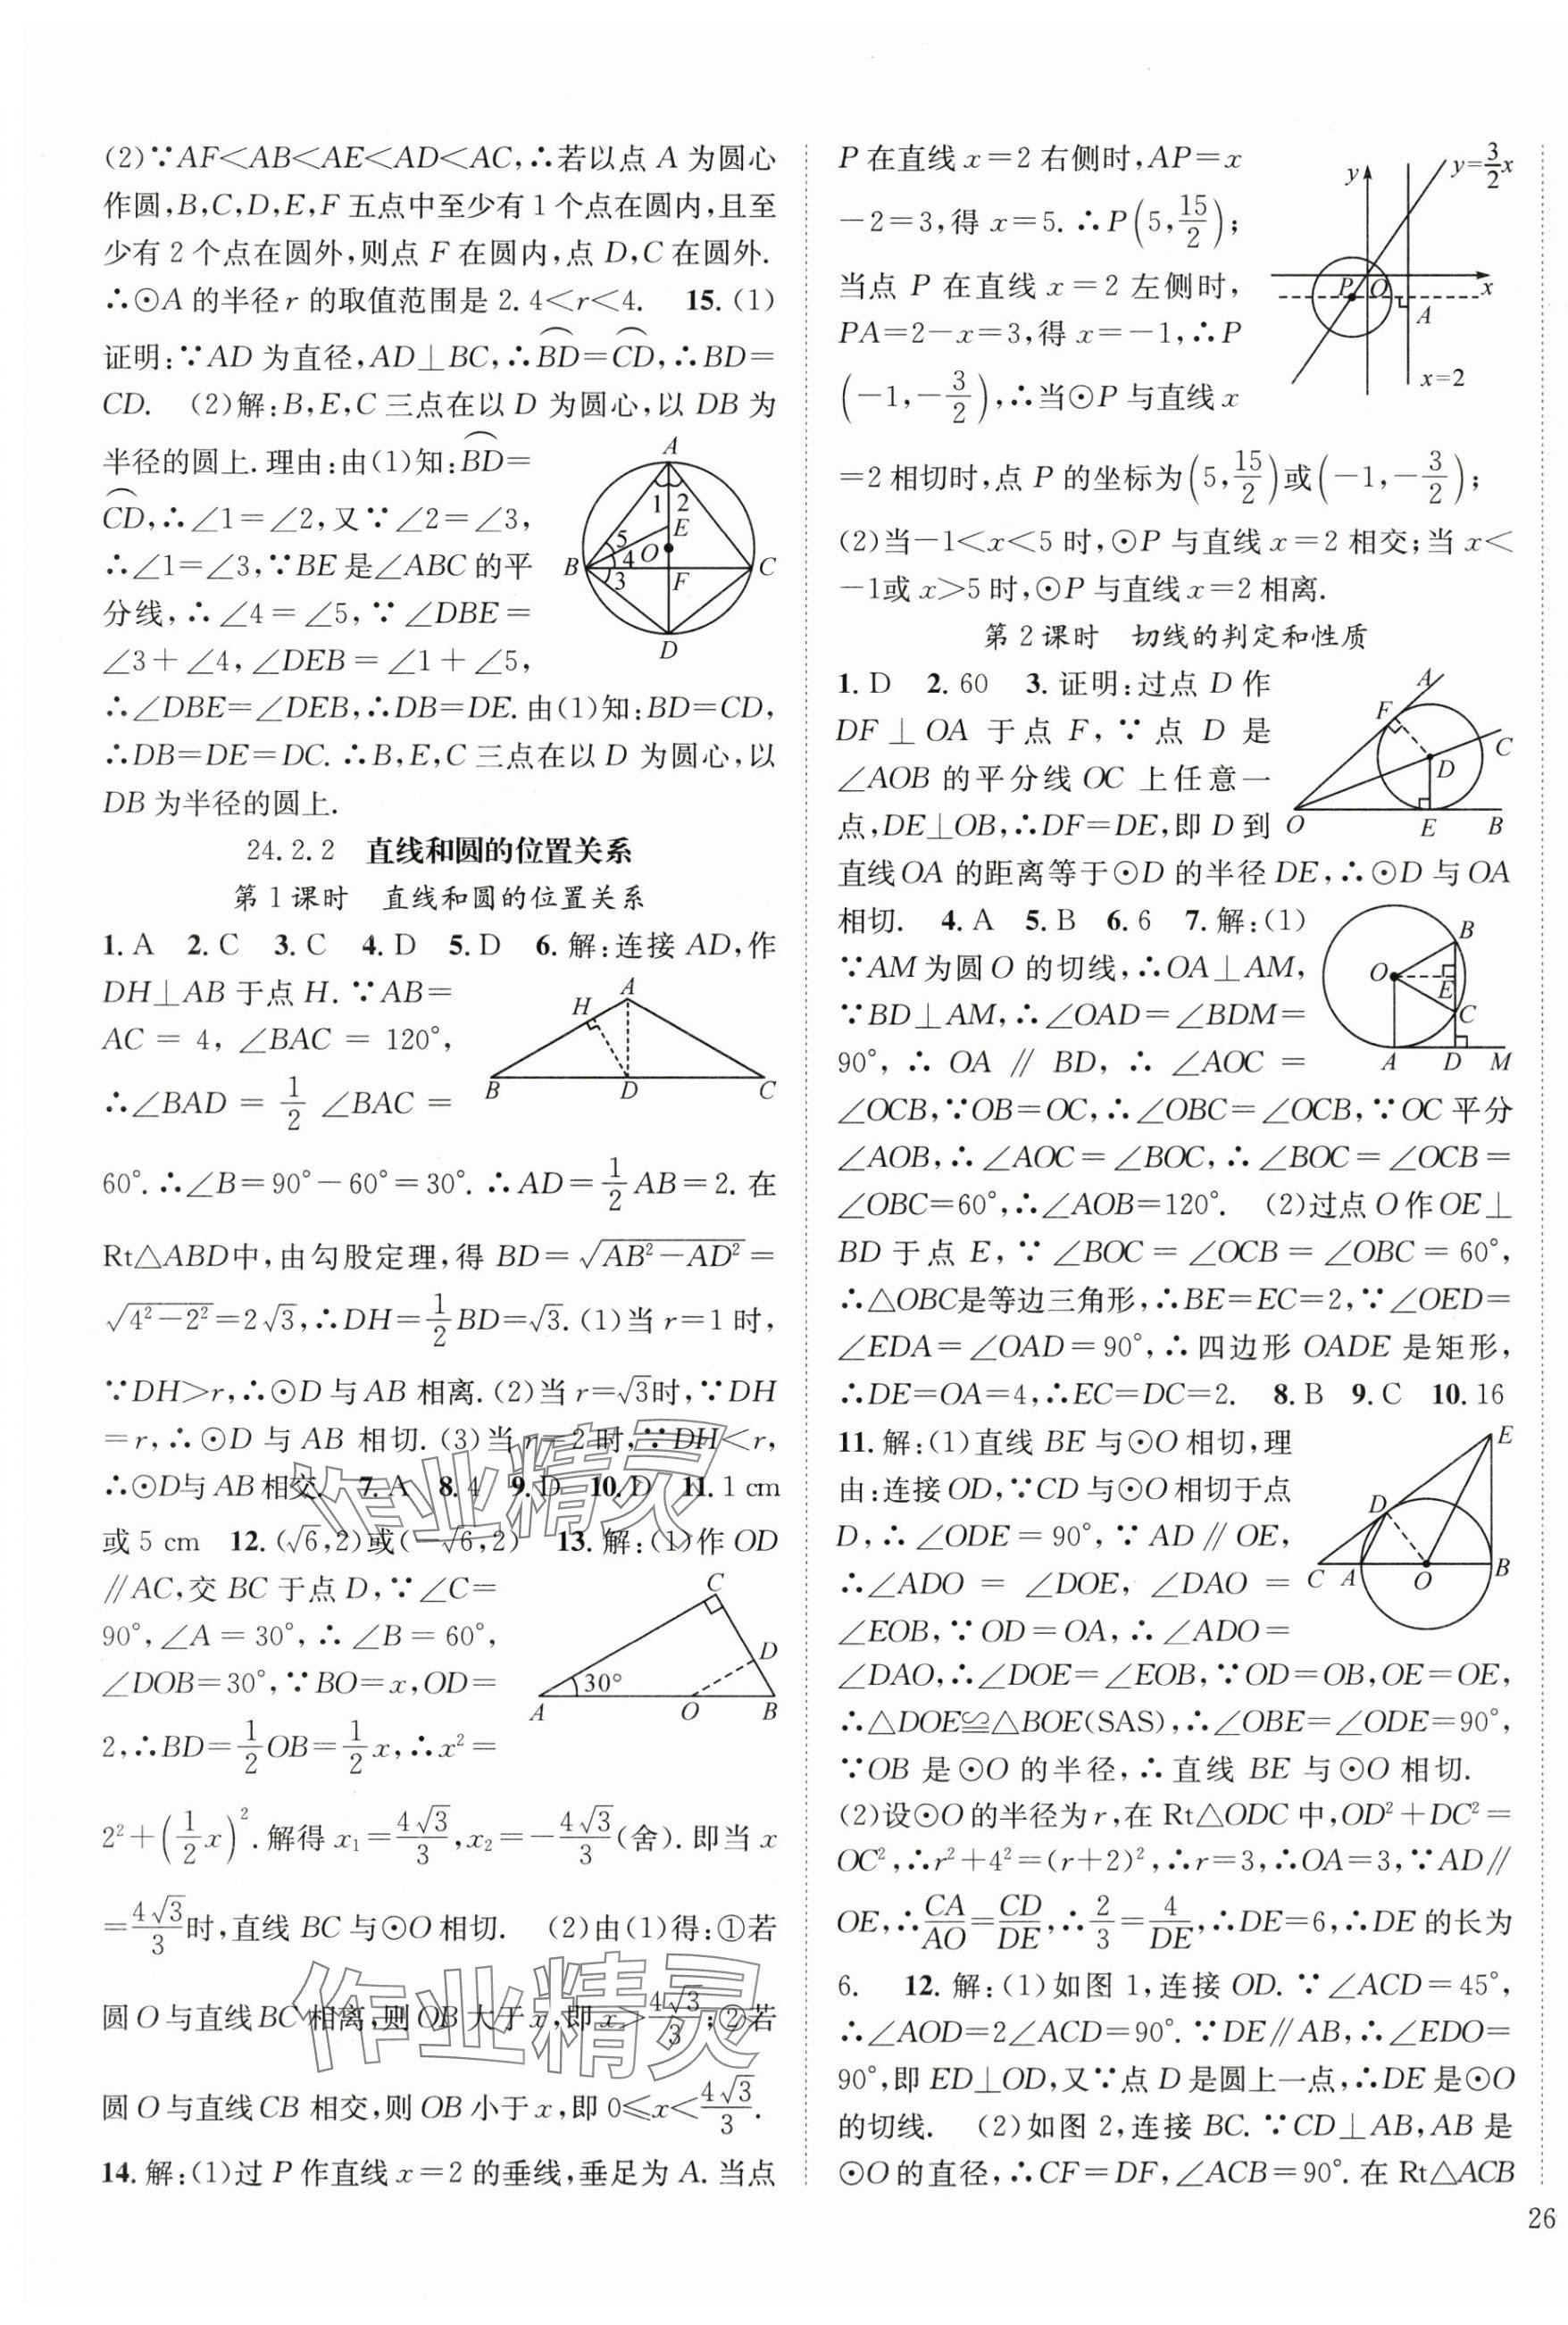 (2)∵AF<AB<AE<AD<AC,∴若以点 A 为圆心
作圆,B,C,D,E,F 五点中至少有 1 个点在圆内,且至
少有 2 个点在圆外,则点 F 在圆内,点 D,C 在圆外.
∴⊙A 的半径 r 的取值范围是 2.4<r<4. 15.(1)
证明:∵AD 为直径,AD⊥BC,∴BD⌒=CD⌒,∴BD=
CD. (2)解:B,E,C 三点在以 D 为圆心,以 DB 为
半径的圆上.理由:由(1)知:BD⌒=
CD⌒,∴∠1=∠2,又∵∠2=∠3,
∴∠1=∠3,∵BE 是∠ABC 的平
分线,∴∠4=∠5,∵∠DBE=
∠3+∠4,∠DEB=∠1+∠5,
∴∠DBE=∠DEB,∴DB=DE.由(1)知:BD=CD,
∴DB=DE=DC.∴B,E,C 三点在以 D 为圆心,以
DB 为半径的圆上.
A
1 2
E
5
B 4 O C
3 F
D
24.2.2 直线和圆的位置关系
第 1 课时 直线和圆的位置关系
1.A 2.C 3.C 4.D 5.D 6.解:连接 AD,作
DH⊥AB 于点 H.∵AB=
AC = 4, ∠BAC = 120°,
∴∠BAD = 1/2 ∠BAC =
A
H
B D C
60°.∴∠B=90°-60°=30°.∴AD=1/2AB=2.在
Rt△ABD中,由勾股定理,得 BD=√(AB²-AD²)=
√(4²-2²)=2√3,∴DH=1/2BD=√3.(1)当 r=1 时,
∵DH>r,∴⊙D 与 AB 相离.(2)当 r=√3时,∵DH
=r,∴⊙D 与 AB 相切.(3)当 r=2 时,∵DH<r,
∴⊙D与 AB 相交. 7.A 8.4 9.D 10.D 11.1 cm
或 5 cm 12.(√6,2)或(-√6,2) 13.解:(1)作 OD
∥AC,交 BC 于点 D,∵∠C=
90°,∠A=30°,∴∠B=60°,
∠DOB=30°,∵BO=x,OD=
2,∴BD=1/2OB=1/2x,∴x²=
C
D
30°
A O B
2²+(1/2x)².解得 x₁=4√3/3,x₂=-4√3/3(舍).即当 x
=4√3/3时,直线 BC 与⊙O 相切. (2)由(1)得:①若
圆 O 与直线 BC 相离,则 OB 大于 x,即 x>4√3/3;②若
圆 O 与直线 CB 相交,则 OB 小于 x,即 0≤x<4√3/3.
14.解:(1)过 P 作直线 x=2 的垂线,垂足为 A.当点
作业精灵
作业精灵
P 在直线 x=2 右侧时,AP=x
-2=3,得 x=5.∴P(5,15/2);
当点 P 在直线 x=2 左侧时,
PA=2-x=3,得 x=-1,∴P
(-1,-3/2),∴当⊙P 与直线 x
y y=3/2x
P O x
A
x=2
=2 相切时,点 P 的坐标为(5,15/2)或(-1,-3/2);
(2)当-1<x<5 时,⊙P 与直线 x=2 相交;当 x<
-1或 x>5 时,⊙P 与直线 x=2 相离.
第 2 课时 切线的判定和性质
1.D 2.60 3.证明:过点 D 作
DF⊥OA 于点 F,∵点 D 是
∠AOB 的平分线 OC 上任意一
点,DE⊥OB,∴DF=DE,即 D 到
直线OA 的距离等于⊙D 的半径 DE,∴⊙D 与 OA
A
F
C
D
O E B
相切. 4.A 5.B 6.6 7.解:(1)
∵AM为圆 O 的切线,∴OA⊥AM,
∵BD⊥AM,∴∠OAD=∠BDM=
90°,∴ OA∥BD,∴∠AOC=
B
O
E
C
A D M
∠OCB,∵OB=OC,∴∠OBC=∠OCB,∵OC 平分
∠AOB,∴∠AOC=∠BOC,∴∠BOC=∠OCB=
∠OBC=60°,∴∠AOB=120°. (2)过点 O 作 OE⊥
BD 于点 E,∵∠BOC=∠OCB=∠OBC=60°,
∴△OBC是等边三角形,∴BE=EC=2,∵∠OED=
∠EDA=∠OAD=90°,∴四边形 OADE 是矩形,
∴DE=OA=4,∴EC=DC=2. 8.B 9.C 10.16
11.解:(1)直线 BE 与⊙O 相切,理
由:连接 OD,∵CD 与⊙O 相切于点
D,∴∠ODE=90°,∵AD∥OE,
∴∠ADO = ∠DOE, ∠DAO =
∠EOB,∵OD=OA,∴∠ADO=
E
D
C A O B
∠DAO,∴∠DOE=∠EOB,∵OD=OB,OE=OE,
∴△DOE≌△BOE(SAS),∴∠OBE=∠ODE=90°,
∵OB 是⊙O 的半径,∴直线 BE 与⊙O 相切.
(2)设⊙O 的半径为 r,在 Rt△ODC 中,OD²+DC²=
OC²,∴r²+4²=(r+2)²,∴r=3,∴OA=3,∵AD∥
OE,∴CA/AO=CD/DE,∴2/3=4/DE,∴DE=6,∴DE 的长为
6. 12.解:(1)如图 1,连接 OD.∵∠ACD=45°,
∴∠AOD=2∠ACD=90°.∵DE∥AB,∴∠EDO=
90°,即 ED⊥OD,又∵点 D 是圆上一点,∴DE 是⊙O
的切线. (2)如图 2,连接 BC.∵CD⊥AB,AB 是
⊙O 的直径,∴CF=DF,∠ACB=90°.在 Rt△ACB
26